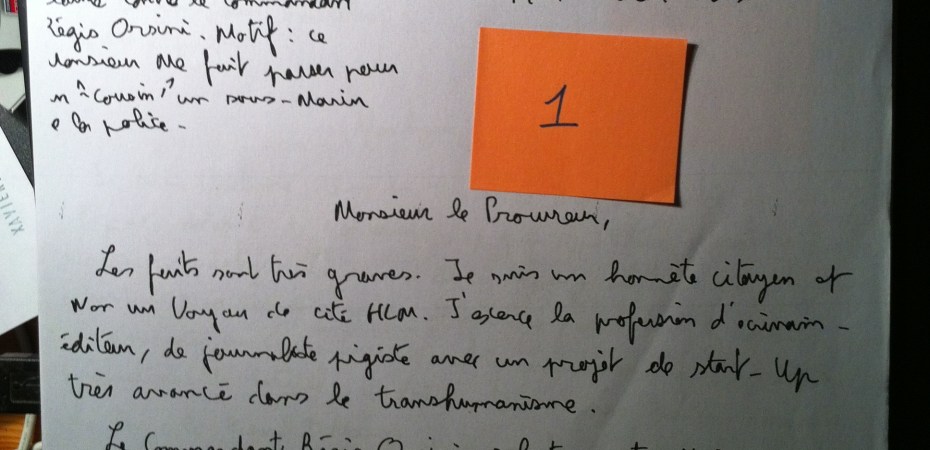 contre le Commandant
Régis Orsini. Motif : ce
Monsieur me fait passer pour
un "Cousin", un sous-Marin
de la police -
1
Monsieur le Procureur,
Les faits sont très graves. Je suis un honnête citoyen et
Non un Voyou de cité HLM. J'exerce la profession d'écrivain-
éditeur, de journaliste pigiste avec un projet de start-Up
très avancé dans le transhumanisme.
Le Commandant Régis Orsini
XAVIER